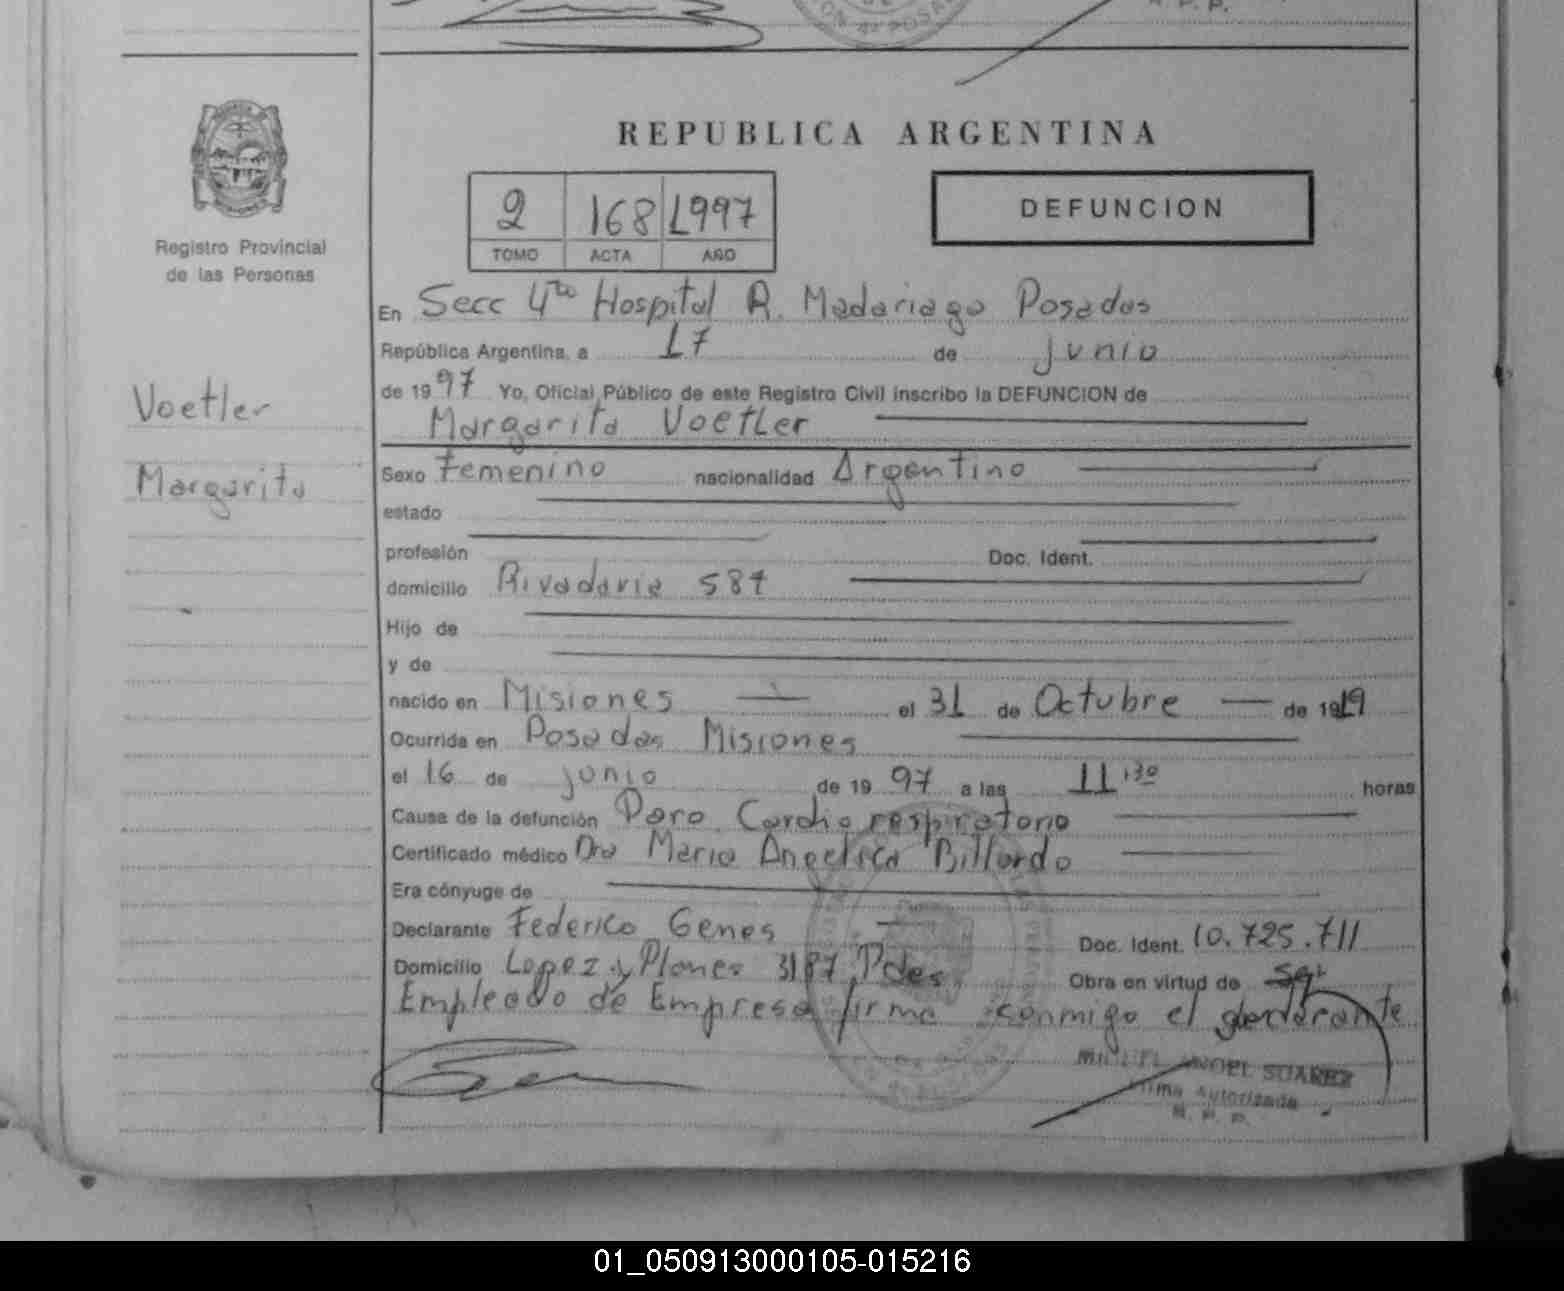 REPUBLICA ARGENTINA
2 168 1997
TOMO ACTA AÑO
DEFUNCION
Registro Provincial
de las Personas
Voetler
Margarita
En Secc 4ta Hospital R. Madariaga Posadas
República Argentina, a 17 de junio
de 19 97 Yo, Oficial Público de este Registro Civil inscribo la DEFUNCION de
Margarita Voetler
Sexo Femenino nacionalidad Argentina
estado
profesión Doc. Ident.
domicilio Rivadavia 587
Hijo de
y de
nacido en Misiones el 31 de Octubre de 1919
Ocurrida en Posadas Misiones
el 16 de junio de 19 97 a las 11:30 horas
Causa de la defunción Paro Cardio respiratorio
Certificado médico Dra Maria Angelica Billordo
Era cónyuge de
Declarante Federico Genes Doc. Ident. 10.725.711
Domicilio Lopez y Planes 3187 Pdas Obra en virtud de ser
Empleado de Empresa firma conmigo el declarante
MIGUEL ANGEL SUAREZ
Firma Autorizada
R. P. P.
01_050913000105-015216